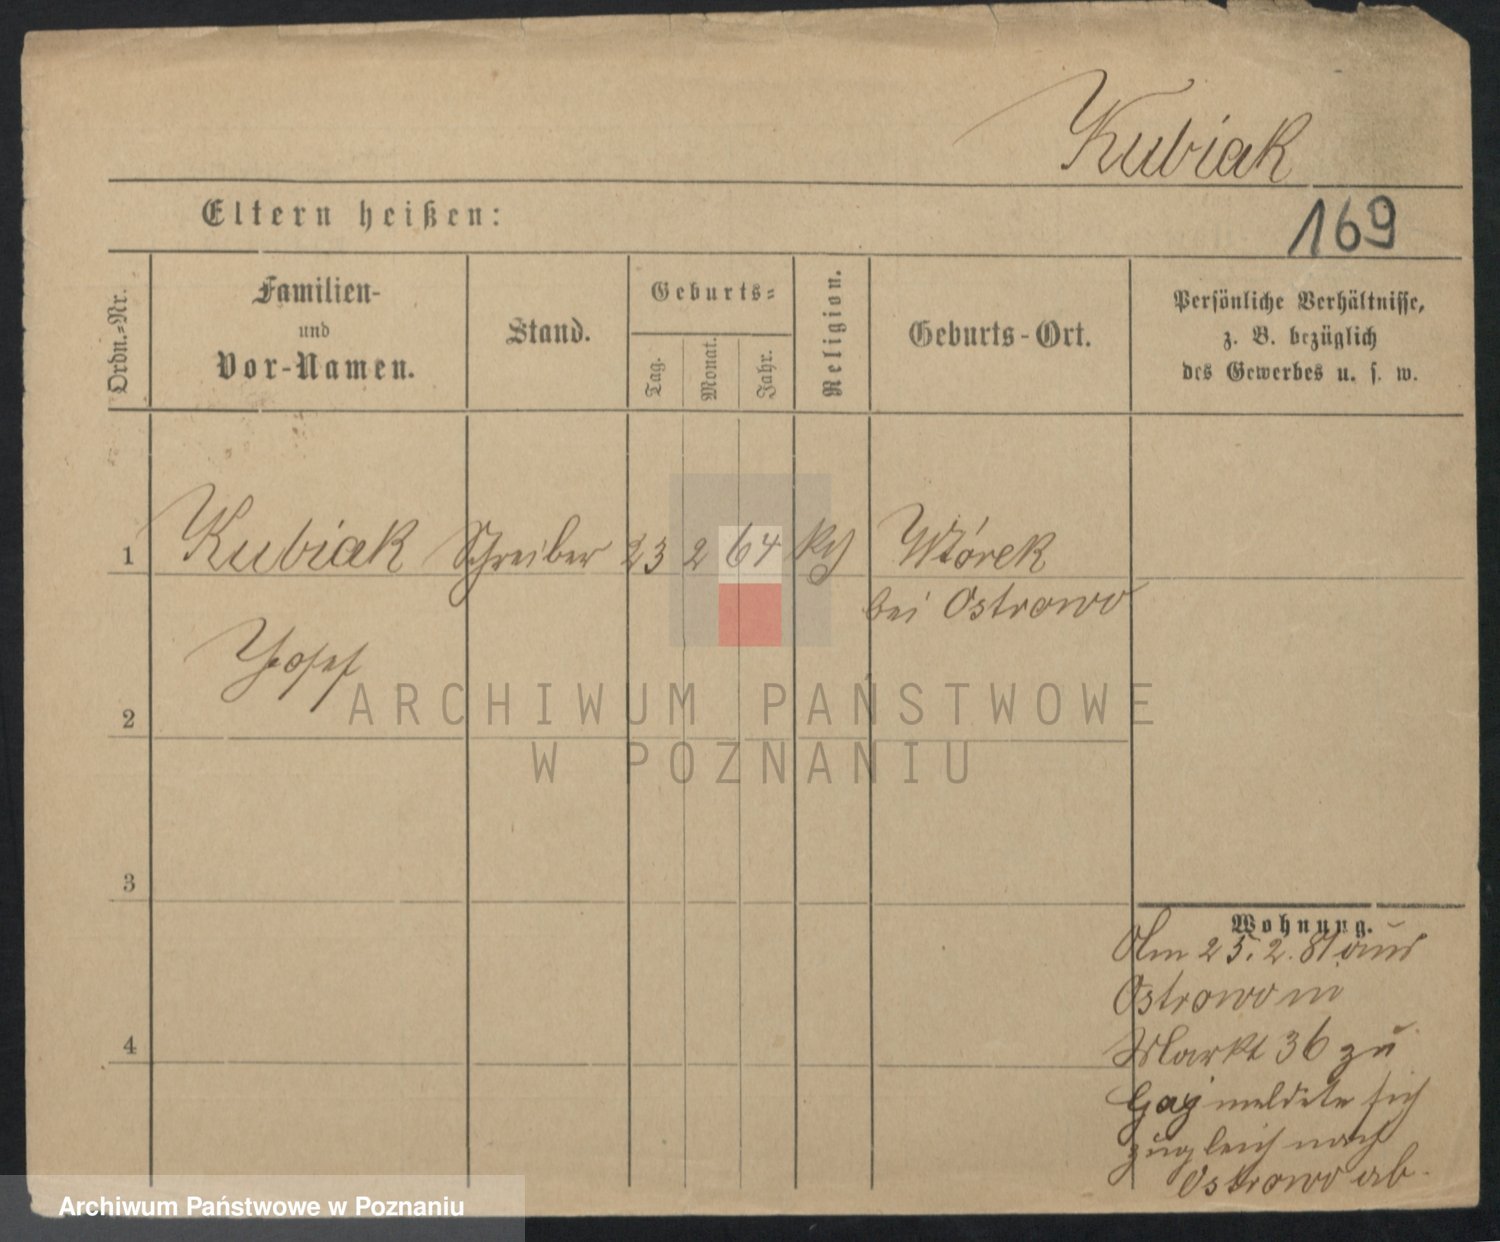 Kubiak
Eltern heißen:
169
Ordn.-Nr.
Familien-
und
Vor-Namen.
Stand.
Geburts-
Tag.
Monat.
Jahr.
Religion.
Geburts-Ort.
Persönliche Verhältnisse,
z. B. bezüglich
des Gewerbes u. s. w.
1 Kubiak Schreiber 23 2 64 kth Wtórek
bei Ostrowo
Josef
2
3
4
ARCHIWUM PAŃSTWOWE
W POZNANIU
Wohnung.
Am 25.2.81 aus
Ostrowo in
Markt 36 zu
Gay meldete sich
zugleich nach
Ostrowo ab.
Archiwum Państwowe w Poznaniu